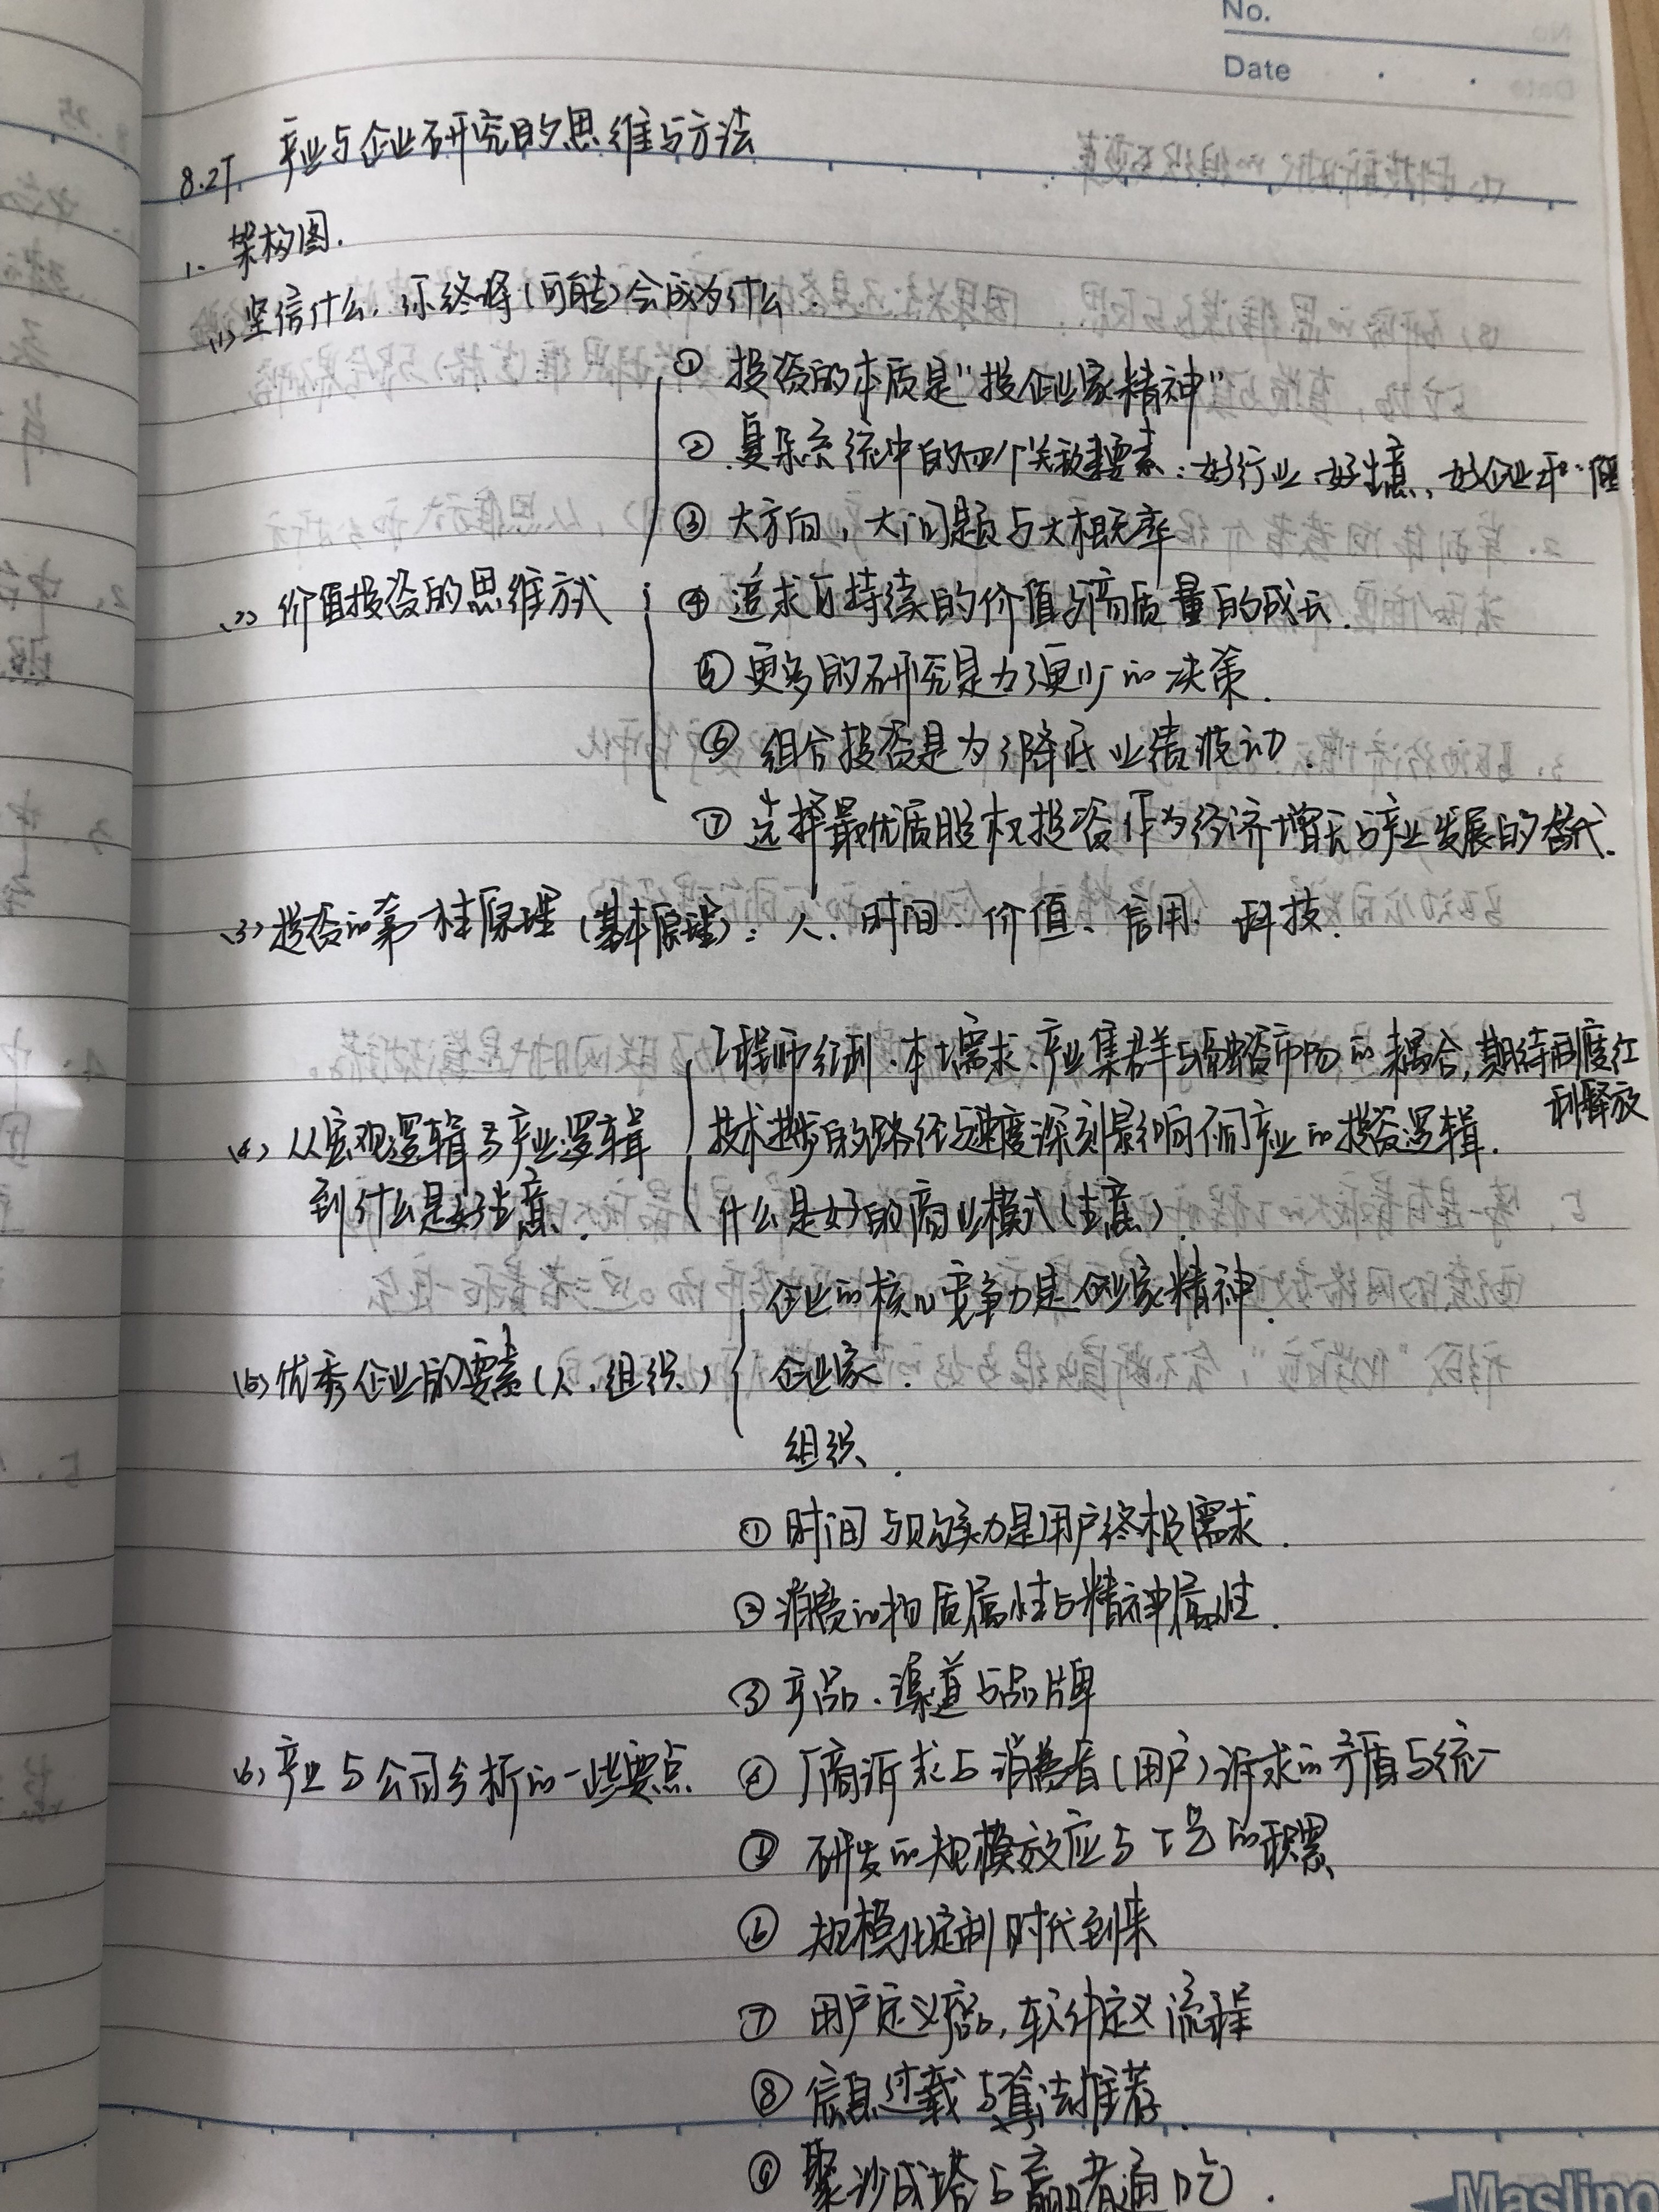 No.
Date
8.27 产业与企业研究的思维与方法
1. 架构图.
(1) 坚信什么, 你终将(可能)会成为什么.
① 投资的本质是"投企业家精神"
② 复杂系统中的四个关键要素: 好行业、好生意、好企业和
③ 大方向, 大问题与大概率
(2) 价值投资的思维方式
④ 追求可持续的价值与高质量的成长.
⑤ 更多的研究是为了更少的决策.
⑥ 组合投资是为了降低业绩波动.
⑦ 选择最优质股权投资作为经济增长与产业发展的替代.
(3) 投资的第一性原理 (基本原理): 人、时间、价值、信用、科技.
工程师红利、本土需求、产业集群与融资市场的耦合, 期待制度红
利释放
(4) 从宏观逻辑与产业逻辑
技术进步的路径与速度深刻影响不同产业的投资逻辑.
到什么是好生意.
什么是好的商业模式(生意).
企业的核心竞争力是企业家精神.
(5) 优秀企业的要素(人、组织)
企业家.
组织.
① 时间与购买力是用户终极需求.
② 消费的物质属性与精神属性.
③ 产品、渠道与品牌
(6) 产业与公司分析的一些要点
④ 厂商诉求与消费者(用户)诉求的矛盾与统一
⑤ 研发的规模效应与工艺的积累
⑥ 规模化定制时代到来
⑦ 用户定义产品, 软件定义流程
⑧ 信息过载与算法推荐.
⑨ 聚沙成塔与赢者通吃.